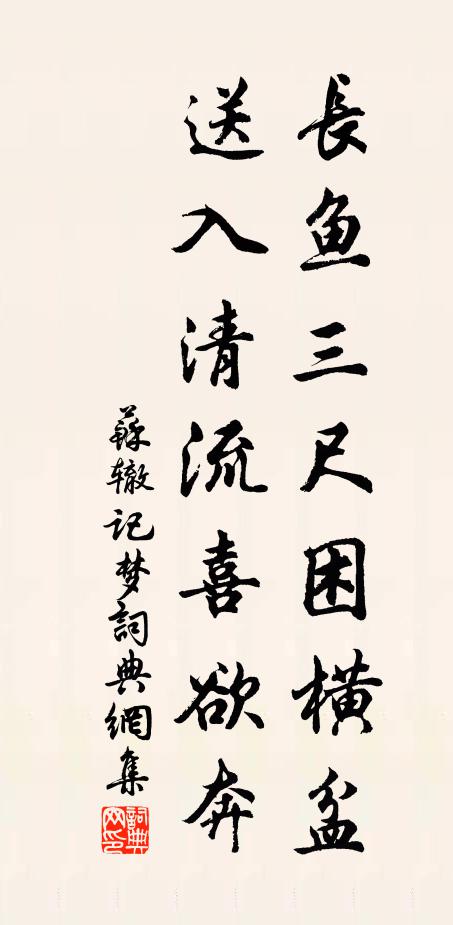 長鱼三尺困横盆
送入清流喜欲奔
蘇辙记梦詞典網集
詞典网印